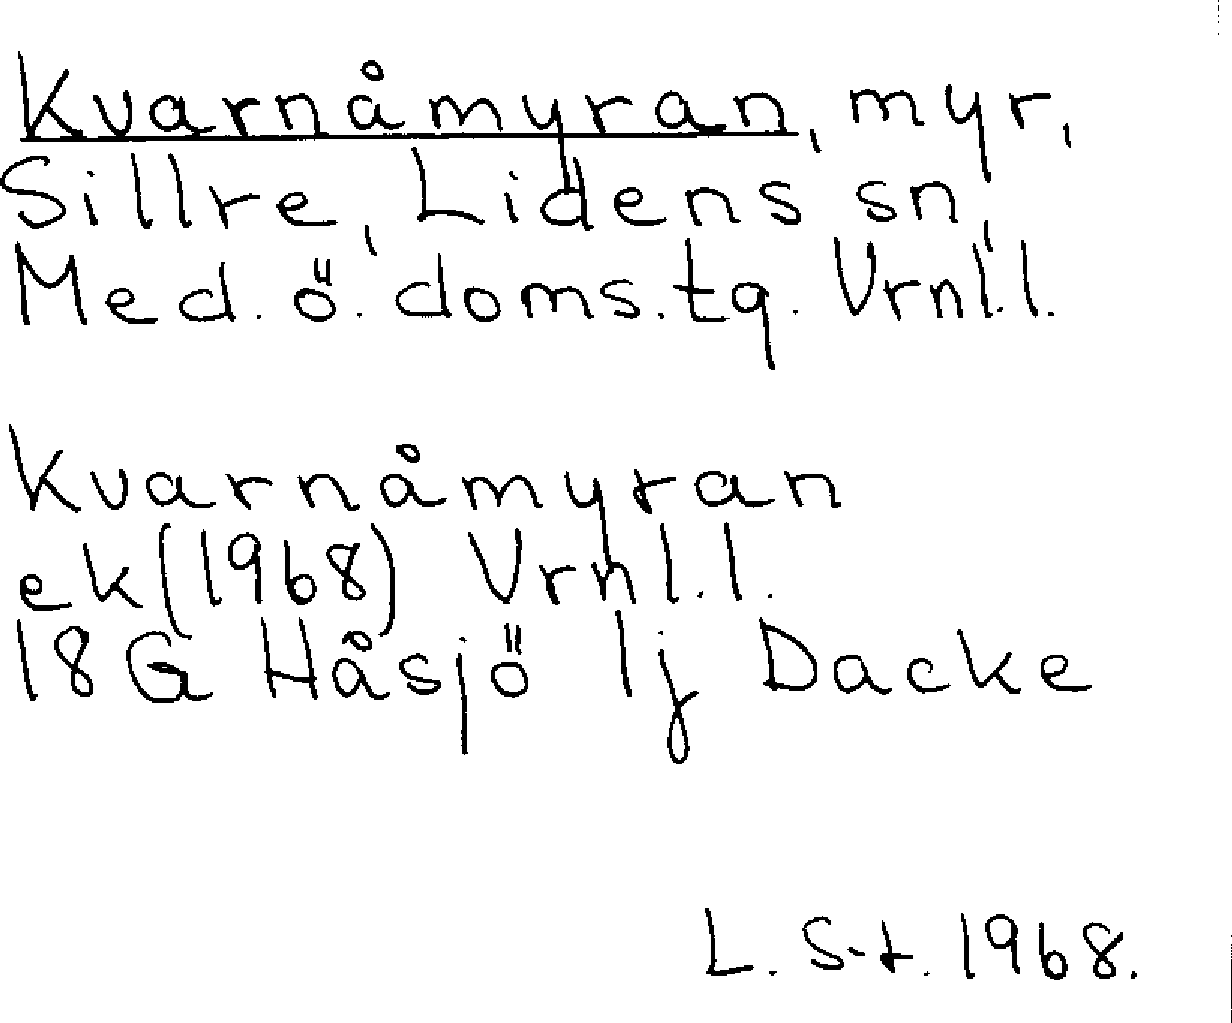 Kvarnåmyran, myr,
Sillre, Lidens sn,
Med. ö. doms.tg. Vrnl.l.
Kvarnåmyran
ek (1968) Vrnl.l.
18G Håsjö 1j Dacke
L. S-t. 1968.